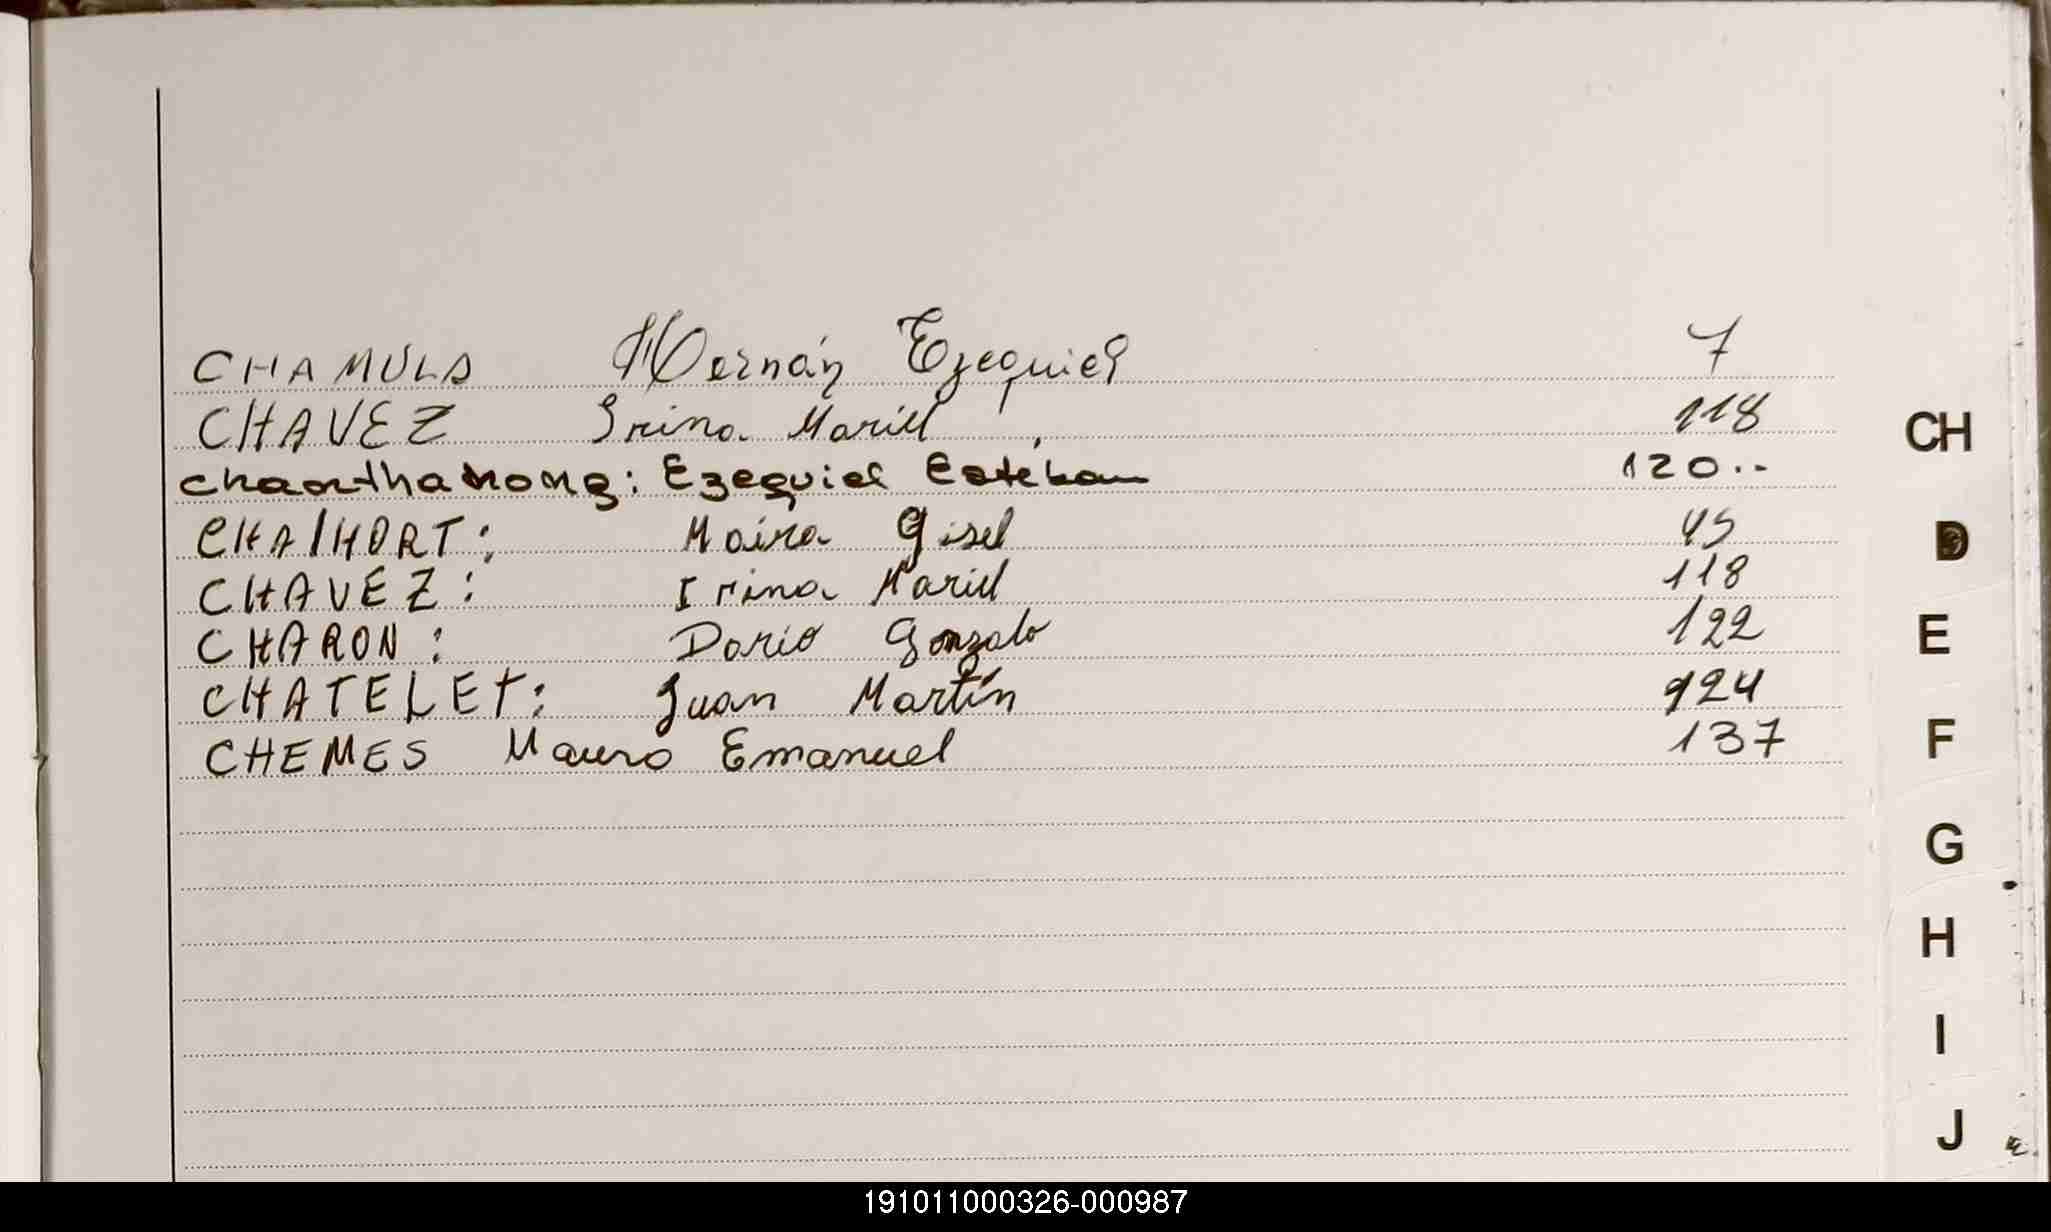 CHAMULA Hernán Ezequiel 7
CHAVEZ Irina Mariel 118
Chanthanong: Ezequiel Esteban 120..
CHA/HORT: Maira Gisel 45
CHAVEZ: Irina Mariel 118
CHARON: Dario Gonzalo 122
CHATELET: Juan Martín 124
CHEMES Mauro Emanuel 137
CH
D
E
F
G
H
I
J
191011000326-000987